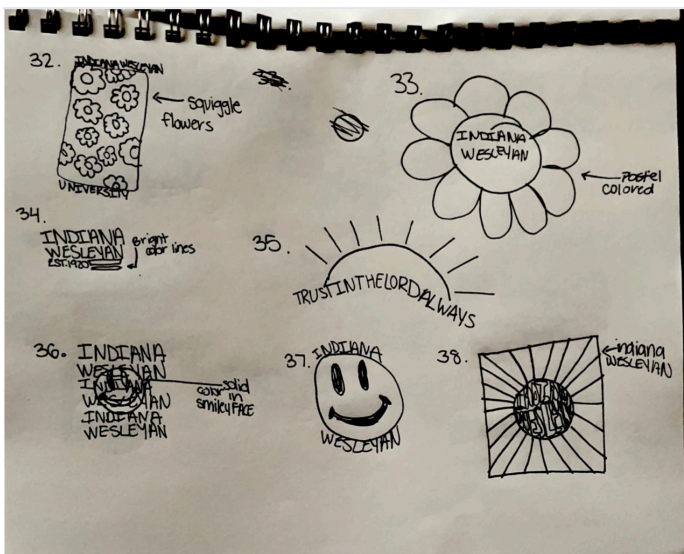 32.
INDIANA WESLEYAN
UNIVERSITY
squiggle
flowers
33.
INDIANA
WESLEYAN
pastel
colored
34.
INDIANA
WESLEYAN
EST. 1920
Bright
color lines
35.
TRUST IN THE LORD ALWAYS
36.
INDIANA
WESLEYAN
INDIANA
WESLEYAN
INDIANA
WESLEYAN
solid
color in
smiley FACE
37.
INDIANA
WESLEYAN
38.
INDIANA
WESLEYAN
indiana
WESLEYAN